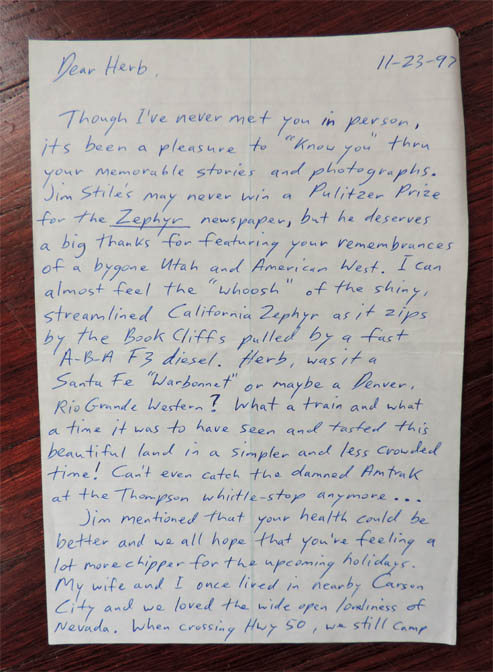 Dear Herb,
11-23-97
Though I've never met you in person,
its been a pleasure to "know you" thru
your memorable stories and photographs.
Jim Stile's may never win a Pulitzer Prize
for the Zephyr newspaper, but he deserves
a big thanks for featuring your remembrances
of a bygone Utah and American West. I can
almost feel the "whoosh" of the shiny,
streamlined California Zephyr as it zips
by the Book Cliffs pulled by a fast
A-B-A F3 diesel. Herb, was it a
Santa Fe "Warbonnet" or maybe a Denver,
Rio Grande Western? What a train and what
a time it was to have seen and tasted this
beautiful land in a simpler and less crowded
time! Can't even catch the damned Amtrak
at the Thompson whistle-stop anymore...
Jim mentioned that your health could be
better and we all hope that you're feeling a
lot more chipper for the upcoming holidays.
My wife and I once lived in nearby Carson
City and we loved the wide open loneliness of
Nevada. When crossing Hwy 50, we still camp